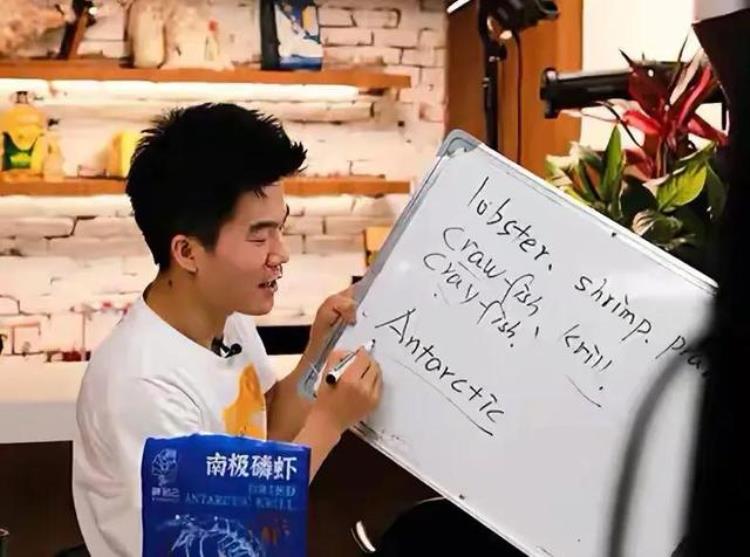 lobster. shrimp. praw
craw-fish krill.
cray-fish.
Antarctic
南极磷虾
DRIED
ANTARCTIC KRILL